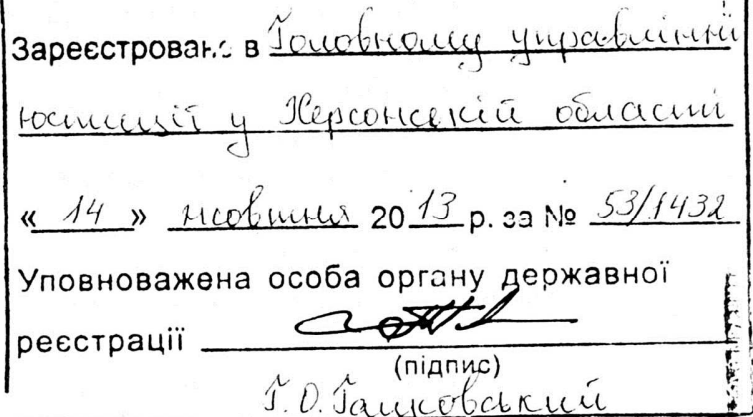 Зареєстровано в Головному управлінні
юстиції у Херсонській області
« 14 » жовтня 20 13 р. за № 53/1432
Уповноважена особа органу державної
реєстрації
(підпис)